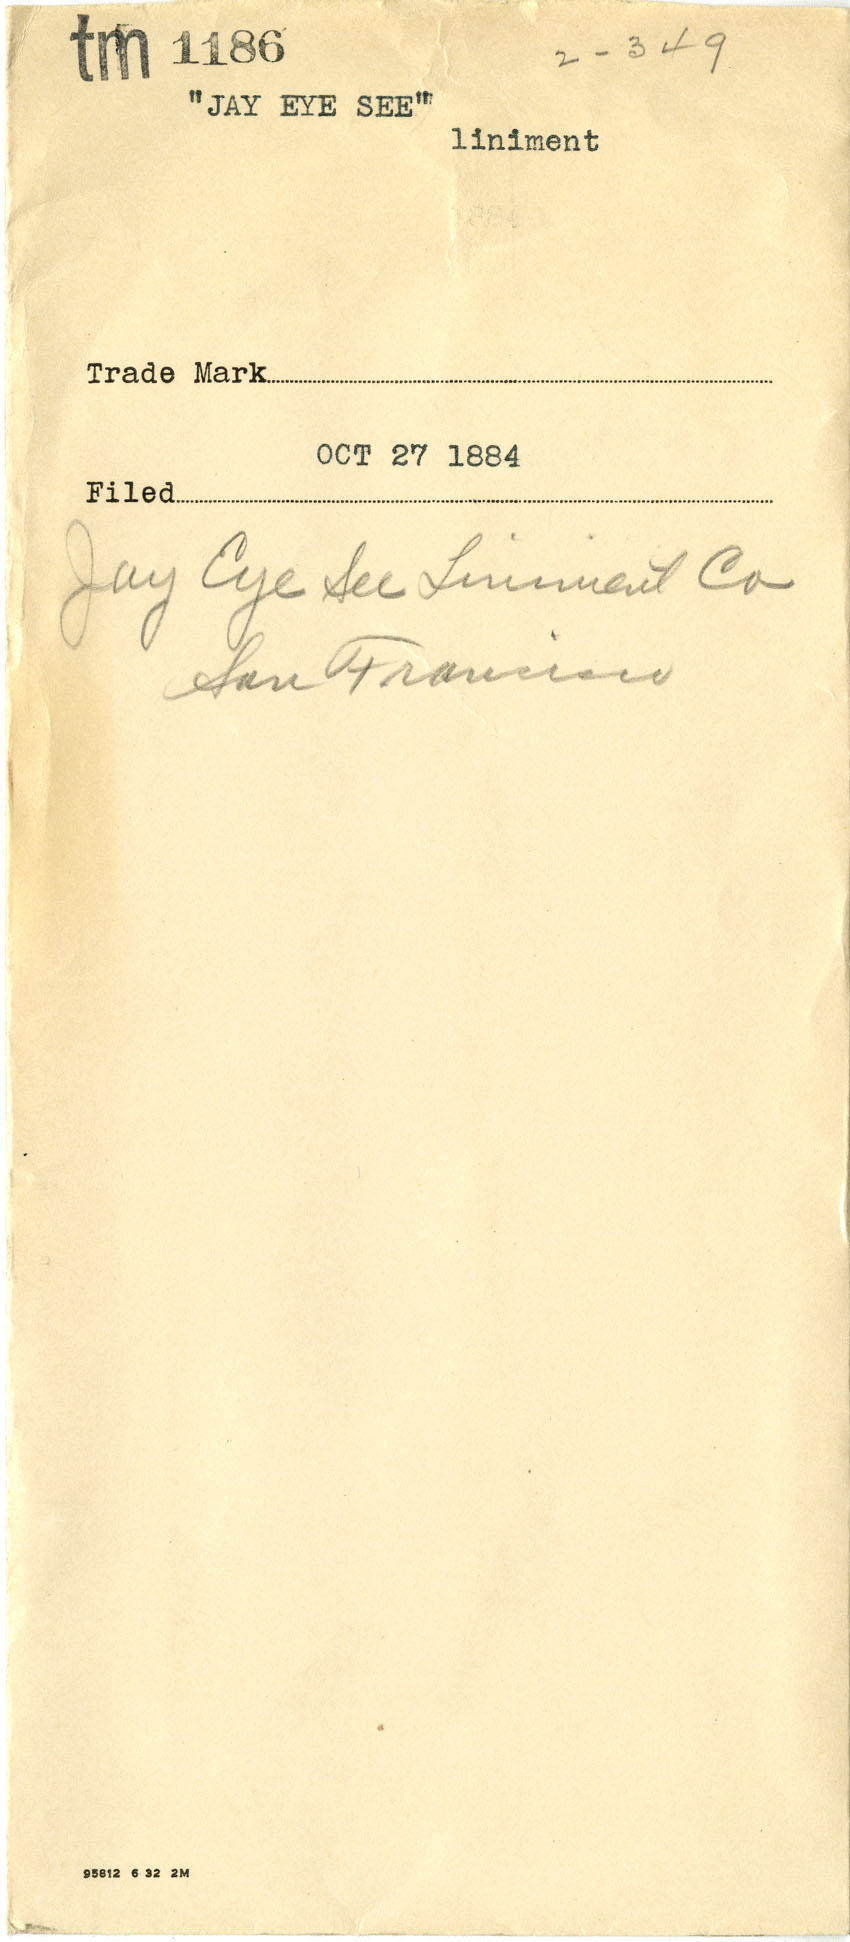 tm 1186
2-349
"JAY EYE SEE"
liniment
Trade Mark
OCT 27 1884
Filed
Jay Eye See Liniment Co
San Francisco
95812 6 32 2M